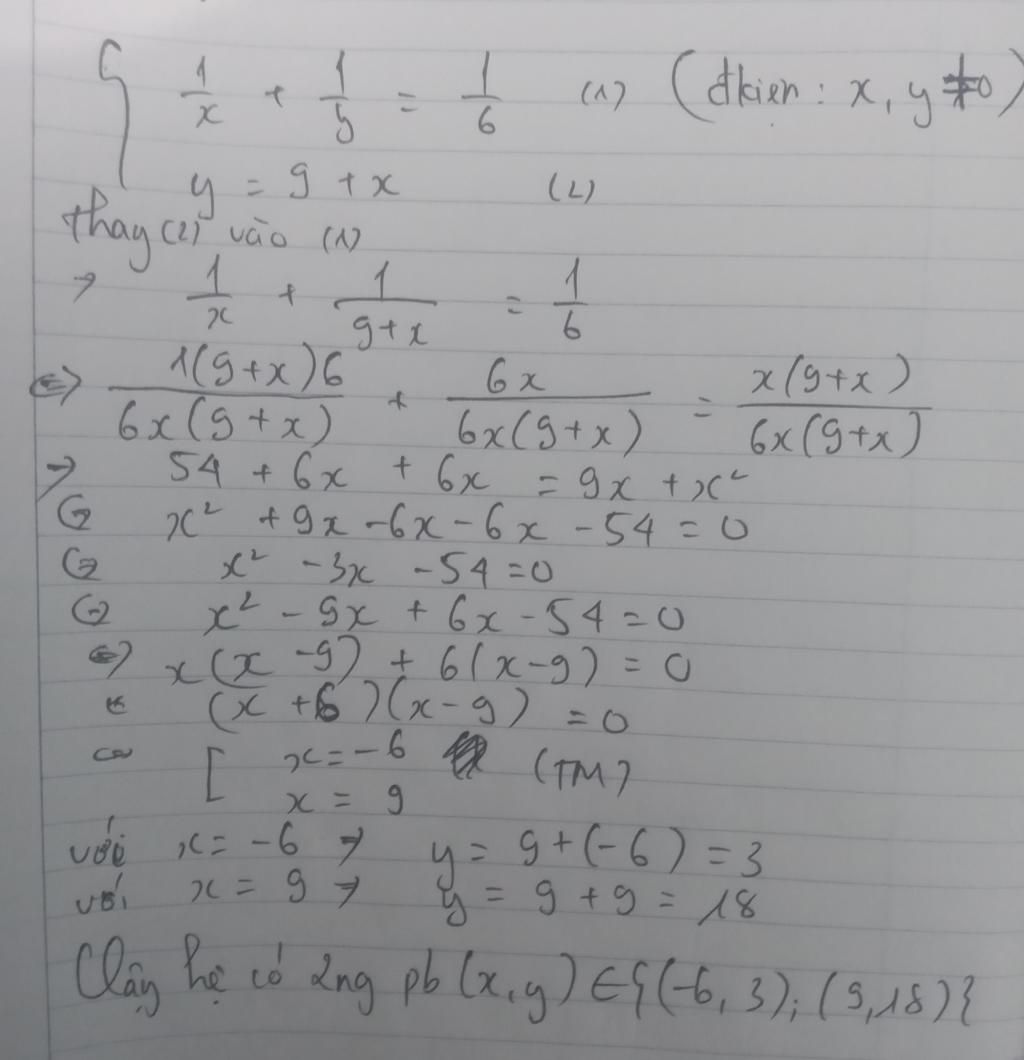 { 1/x + 1/y = 1/6 (1) (đkiện: x, y ≠ 0)
y = 9 + x (2)
thay (2) vào (1)
→ 1/x + 1/(9+x) = 1/6
⇔ 1(9+x)6/6x(9+x) + 6x/6x(9+x) = x(9+x)/6x(9+x)
→ 54 + 6x + 6x = 9x + x²
⇔ x² + 9x - 6x - 6x - 54 = 0
⇔ x² - 3x - 54 = 0
⇔ x² - 9x + 6x - 54 = 0
⇔ x(x - 9) + 6(x - 9) = 0
⇔ (x + 6)(x - 9) = 0
⇔ [ x = -6 (TM)
x = 9
với x = -6 → y = 9 + (-6) = 3
với x = 9 → y = 9 + 9 = 18
Vậy hệ có 2ng pb (x, y) ∈ {(-6, 3); (9, 18)}